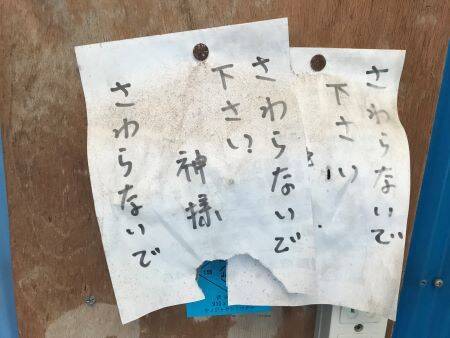 さわらないで
下さい
さわらないで
下さい
神様
さわらないで